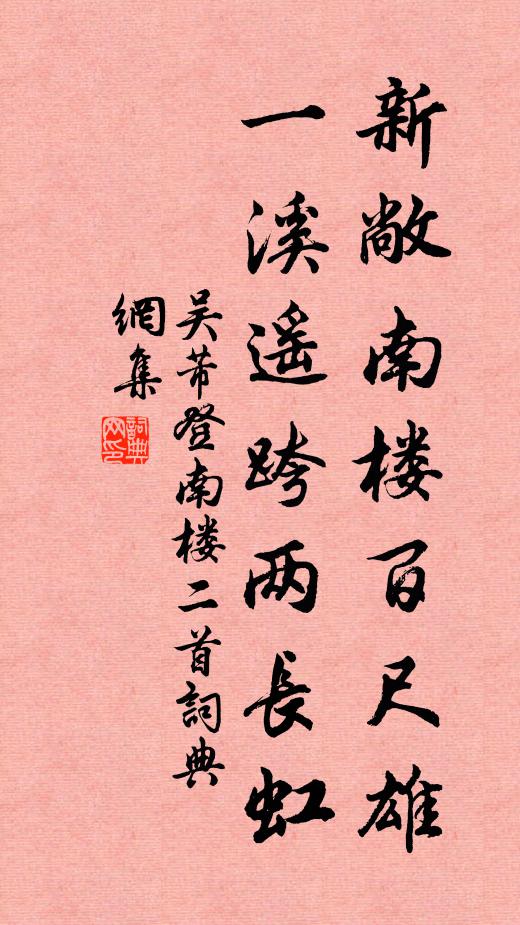 新敞南楼百尺雄
一溪遥跨两長虹
吴芾登南楼二首詞典
網集
詞典网印